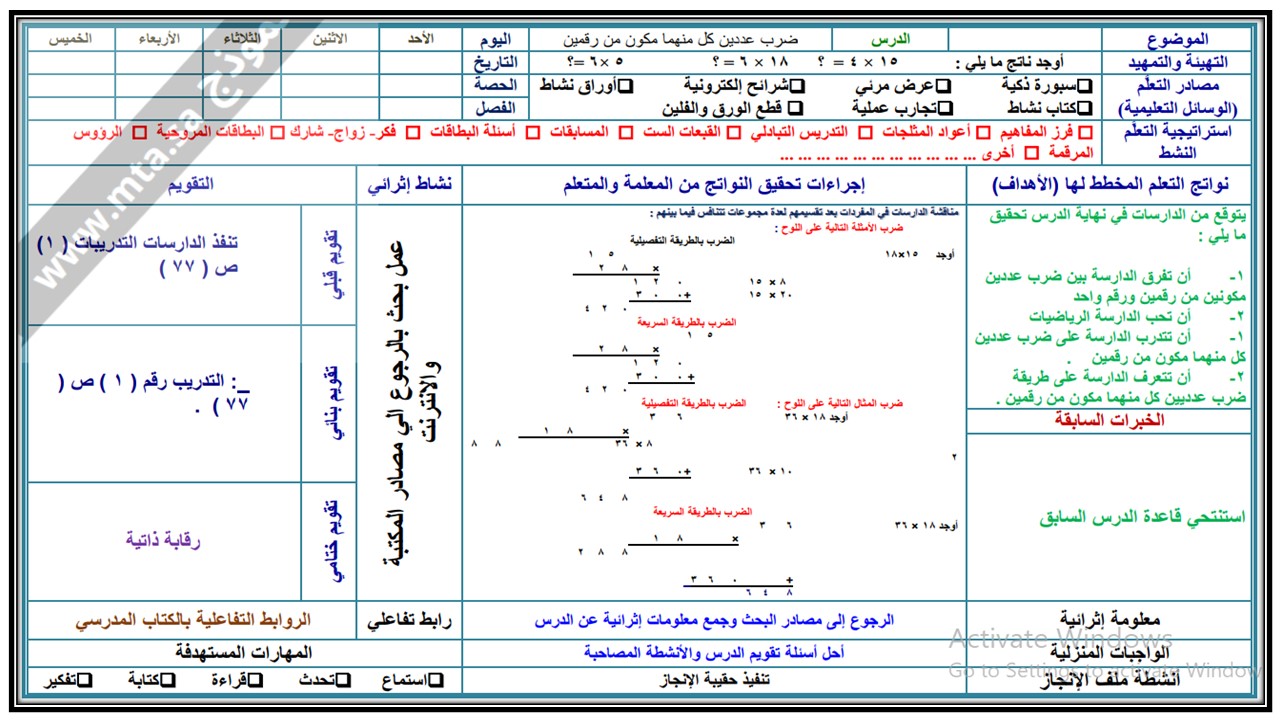 الموضوع
الدرس
ضرب عددين كل منهما مكون من رقمين
اليوم
الأحد
الاثنين
الثلاثاء
الأربعاء
الخميس
التهيئة والتمهيد
أوجد ناتج ما يلي : ١٥ × ٤ = ؟ ١٨ × ٦ = ؟ ٥ × ٦ =؟
التاريخ
مصادر التعلّم
(الوسائل التعليمية)
❑سبورة ذكية ❑عرض مرئي ❑شرائح إلكترونية ❑أوراق نشاط
❑كتاب نشاط ❑تجارب عملية ❑ قطع الورق والفلين
الحصة
الفصل
استراتيجية التعلّم
النشط
□ فرز المفاهيم □ أعواد المثلجات □ التدريس التبادلي □ القبعات الست □ المسابقات □ أسئلة البطاقات □ فكر- زواج- شارك □ البطاقات المروحية □ الرؤوس
المرقمة □ أخرى ... ... ... ... ... ... ... ... ... ... ...
نواتج التعلم المخطط لها (الأهداف)
إجراءات تحقيق النواتج من المعلمة والمتعلم
نشاط إثرائي
التقويم
يتوقع من الدارسات في نهاية الدرس تحقيق
ما يلي :
١- أن تفرق الدارسة بين ضرب عددين
مكونين من رقمين ورقم واحد
٢- أن تحب الدارسة الرياضيات
١- أن تتدرب الدارسة على ضرب عددين
كل منهما مكون من رقمين .
٢- أن تتعرف الدارسة على طريقة
ضرب عدديين كل منهما مكون من رقمين .
الخبرات السابقة
استنتحي قاعدة الدرس السابق
مناقشة الدارسات في المفردات بعد تقسيمهم لعدة مجموعات تتنافس فيما بينهم :
ضرب الأمثلة التالية على اللوح :
الضرب بالطريقة التفصيلية
أوجد ١٥×١٨ ١ ٥
× ٢ ٨
٨ × ١٥ ١ ٢ ٠
٢٠ × ١٥ ٣ ٠ ٠+
٤ ٢ ٠
الضرب بالطريقة السريعة
١ ٥
× ٢ ٨
١ ٢ ٠
٣ ٠ ٠+
٤ ٢ ٠
ضرب المثال التالية على اللوح : الضرب بالطريقة التفصيلية
أوجد ١٨ × ٣٦ ٣ ٦
× ١ ٨
٨ × ٣٦ ٨ ٨
٢
١٠ × ٣٦ ٣ ٦ ٠+
٦ ٤ ٨
الضرب بالطريقة السريعة
أوجد ١٨ × ٣٦ ٣ ٦
× ١ ٨
٢ ٨ ٨
٣ ٦ ٠ +
٦ ٤ ٨
عمل بحث بالرجوع الي مصادر المكتبة
والانترنت
تقويم قبلي
تنفذ الدارسات التدريبات ( ١)
ص ( ٧٧ )
تقويم بنائي
: التدريب رقم ( ١ ) ص (
٧٧ ) .
تقويم ختامي
رقابة ذاتية
معلومة إثرائية
الرجوع إلى مصادر البحث وجمع معلومات إثرائية عن الدرس
رابط تفاعلي
الروابط التفاعلية بالكتاب المدرسي
الواجبات المنزلية
أحل أسئلة تقويم الدرس والأنشطة المصاحبة
المهارات المستهدفة
أنشطة ملف الإنجاز
تنفيذ حقيبة الإنجاز
❑استماع ❑تحدث ❑قراءة ❑كتابة ❑تفكير
www.mta.sa نموذج
Activate Windows
Go to Settings to activate Window